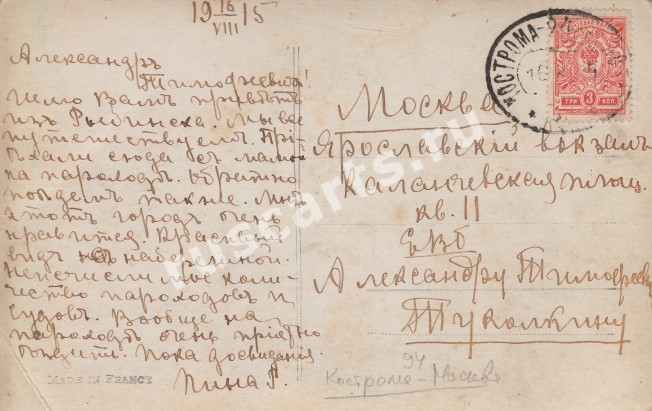 19 16/VIII 15
Александръ
Тимофѣевичъ!
Шлю Вамъ привѣтъ
изъ Рыбинска. Мы все
путешествуемъ. Прі-
ѣхали сюда съ мамой
на пароходѣ. Обратно
поѣдемъ также. Мнѣ
этотъ городъ очень
нравится. Красивый
видъ съ набережной.
Неисчислимое коли-
чество пароходовъ и
судовъ. Вообще на
пароходѣ очень пріятно
ѣздить. Пока до свиданія.
MADE IN FRANCE
КОСТРОМА
ТРИ 3 КОП
Москва
Ярославскій вокзалъ
Каланчевская площ.
кв. 11
ЕВБ
Александру Тимофеевичу
Туколкину
94
Кострома - Москва
ruscarts.ru